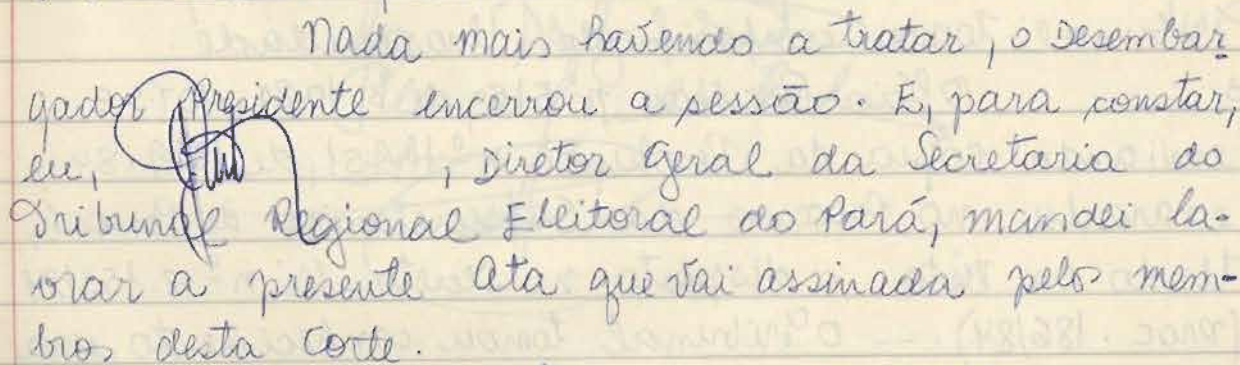 Nada mais havendo a tratar, o Desembar-
gador Presidente encerrou a sessão. E, para constar,
eu, , Diretor Geral da Secretaria do
Tribunal Regional Eleitoral do Pará, mandei la-
vrar a presente Ata que vai assinada pelos mem-
bros desta Corte.